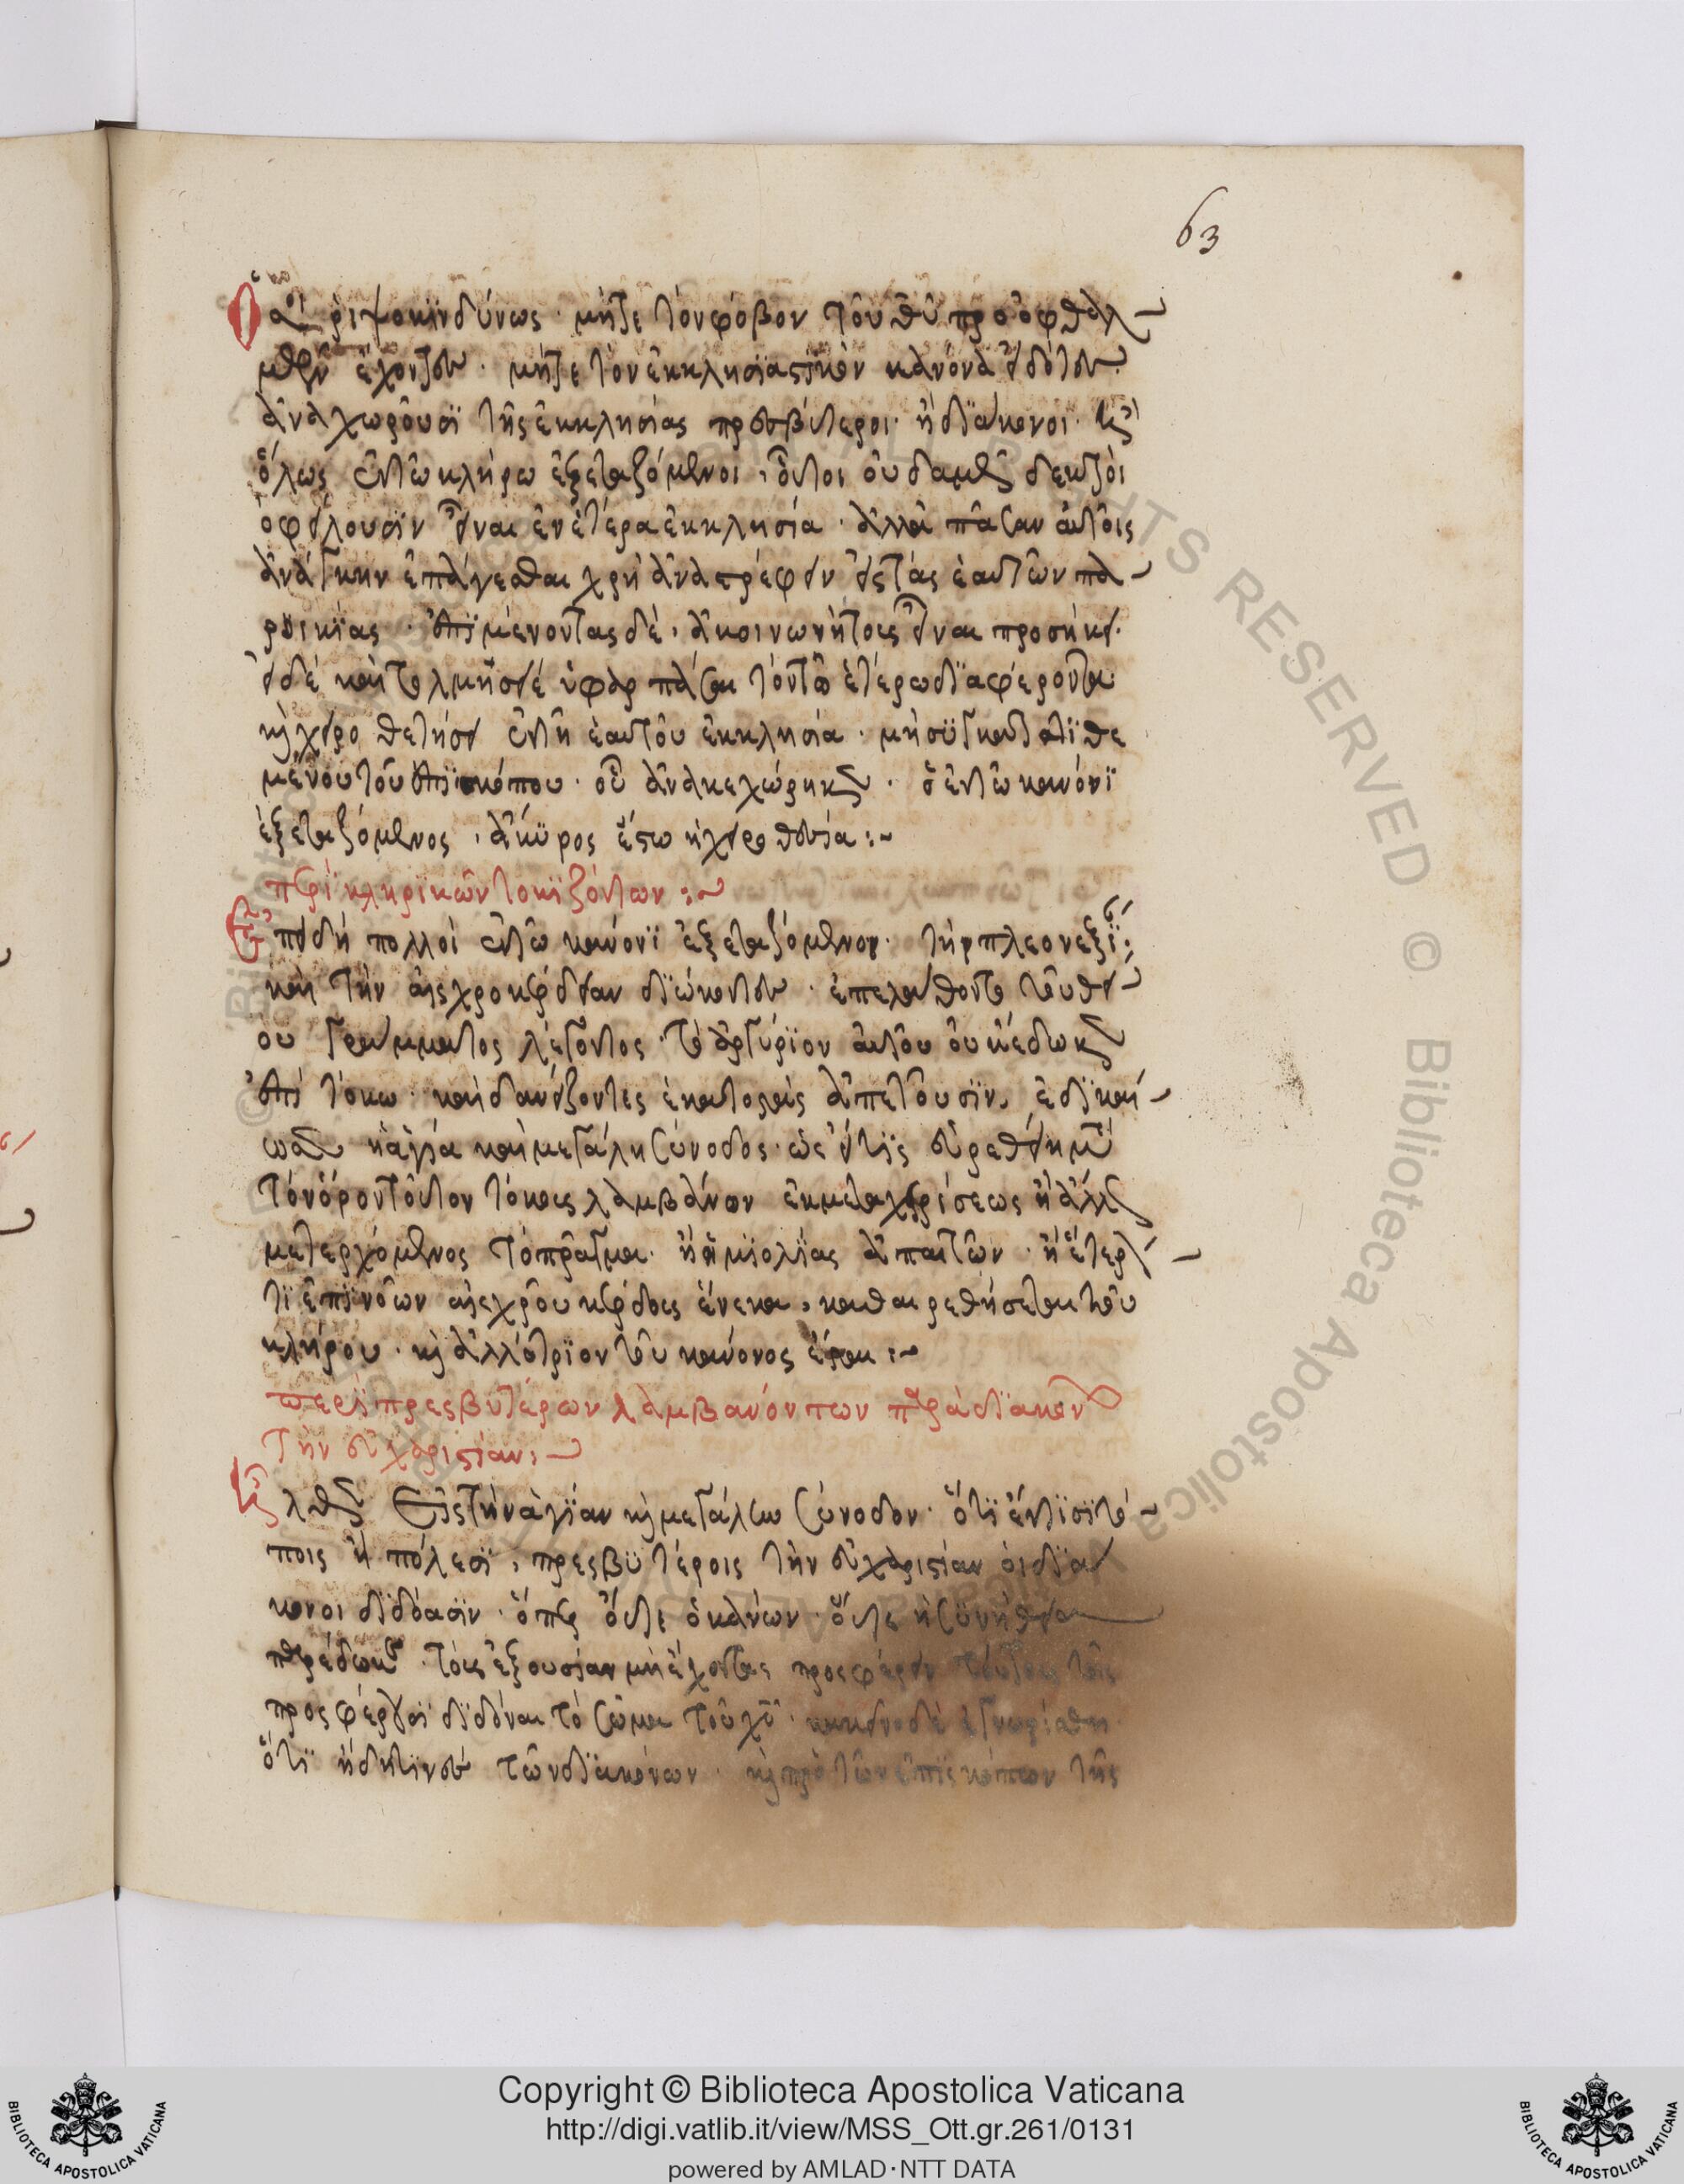 63
Ὅσοι ῥιψοκινδύνως· μήτε τὸν φόβον τοῦ θῦ πρὸ ὀφθαλ
μῶν ἔχοντες· μήτε τὸν ἐκκλησϊαστϊκὸν κανόνα εἰδότες
ἀναχωροῦσϊ τῆς ἐκκλησίας πρεσβύτεροι· ἢ δϊάκονοι· ἢ
ὅλως ἐν τῶ κλήρω ἐξεταζόμενοι, οὗτοι οὐδαμῶς δεκτοὶ
ὀφείλουσϊν εἶναι ἐν ἑτέρα ἐκκλησία· ἀλλὰ πᾶσαν αὐτοῖς
ἀνάγκην ἐπάγεσθαι χρὴ ἀναστρέφειν εἰς τὰς ἑαυτῶν πα
ροικϊας· ἐπϊμένοντας δὲ, ἀκοινωνήτους εἶναι προσήκει·
εἰ δὲ καὶ τολμήσειέ ὑφαρπάσαι τὸν τῶ ἑτέρω δϊαφέροντα
καὶ χειροθετήσει ἐν τῆ ἑαυτοῦ ἐκκλησία· μὴ σϋγκατατϊθε
μένου τοῦ ἐπϊσκόπου· οὗ ἀνακεχώρηκεν· ὁ ἐν τῶ κανόνϊ
ἐξεταζόμενος, ἄκϋρος ἔστω ἡ χειροθεσία:~
περὶ κληρϊκῶν τοκϊζόντων:~
Ἐπειδὴ πολλοὶ ἐν τῶ κανόνϊ ἐξεταζόμενοι· τὴν πλεονεξϊ
καὶ τὴν αἰσχροκέρδειαν δϊώκοντες· ἐπελάθοντο τοῦ θεί
ου γράμματος λέγοντος· τὸ ἀργύρϊον αὐτοῦ οὐκ ἔδωκεν
ἐπὶ τόκω· καὶ δανείζοντες ἑκατοστὰς ἀπετοῦσϊν, ἐδϊκαί
ωσεν ἡ ἁγία καὶ μεγάλη σύνοδος· ὡς εἴ τϊς εὑρεθείη μετὰ
τὸν ὅρον τοῦτον τόκους λαμβάνων ἐκ μεταχειρίσεως ἢ ἄλλως
μετερχόμενος τὸ πρᾶγμα· ἢ ἡμϊολϊας ἀπαιτῶν· ἢ ἕτερόν
τϊ ἐπϊνοῶν αἰσχροῦ κέρδους ἕνεκα, καθαιρεθήσεται τοῦ
κλήρου· καὶ ἀλλότρϊον τοῦ κανόνος ἔσται:~
περὶ πρεσβυτέρων λαμβανόντων παρὰ δϊακόνων
τὴν εὐχαριστίαν:~
Ἦλθεν εἰς τὴν ἁγϊαν καὶ μεγάλην σύνοδον· ὅτϊ ἔν τϊσϊ τό
ποις ἢ πόλεσϊ, πρεσβϋτέροις τὴν εὐχαριστίαν οἱ δϊά
κονοι δϊδόασϊν· ὅπερ οὔτε ὁ κανὼν· οὔτε ἡ σϋνήθεια
παρέδωκε· τοὺς ἐξουσίαν μὴ ἔχοντας προσφέρειν τούτους τοῖς
προσφέρουσϊ δϊδόναι τὸ σῶμα τοῦ χῦ· κακεῖνο δὲ ἐγνωρίσθη
ὅτϊ ἤδη τϊνὲς τῶν δϊακόνων· καὶ πρὸ τῶν ἐπϊσκόπων τῆς
Copyright © Biblioteca Apostolica Vaticana
http://digi.vatlib.it/view/MSS_Ott.gr.261/0131
powered by AMLAD·NTT DATA